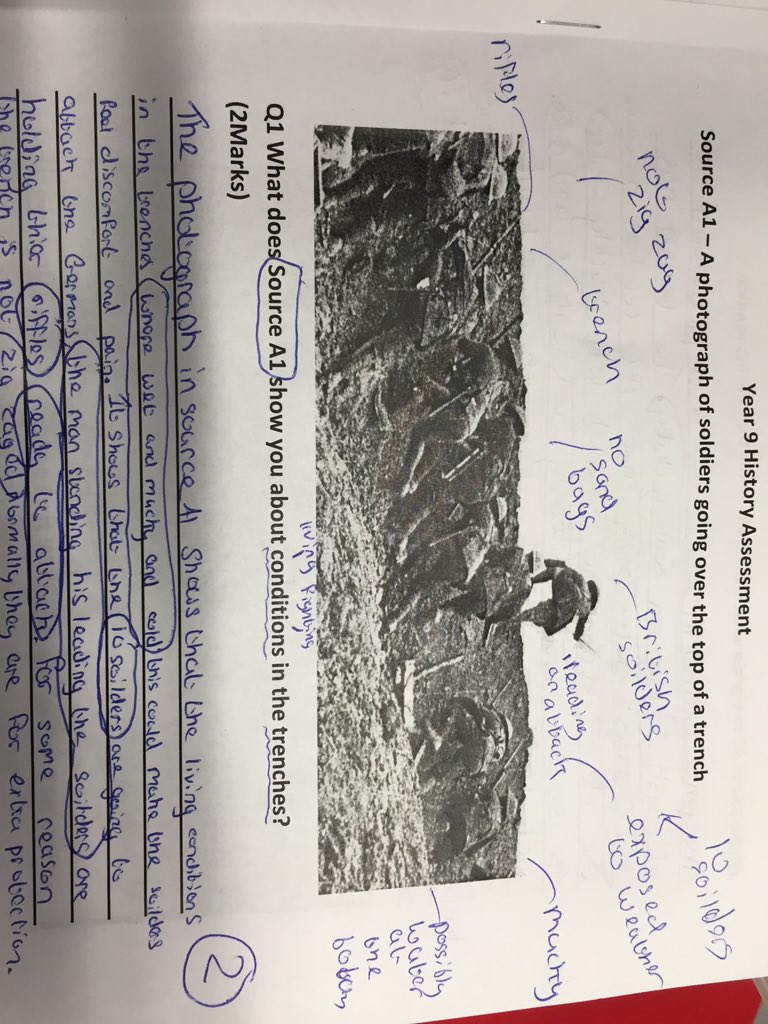 Year 9 History Assessment
Source A1 – A photograph of soldiers going over the top of a trench
10
soilders
not
zig zag
British
soilders
exposed
to weather
riffles
trench
no
sand
bags
leading
an attack
muchy
possibly
water
at
the
bottom
living fighting
Q1 What does Source A1 show you about conditions in the trenches?
(2Marks)
2
The photograph in source A1 shows that the living conditions
in the trenches whore wet and muchy and cold this could make the soilders
feel discomfort and pain. It shows that the 10 soilders are going to
attack the Germans the man standing his leading the soilders are
holding thier riffles ready to attack for some reason
the trench is not zig zaged normally they are for extra protection.